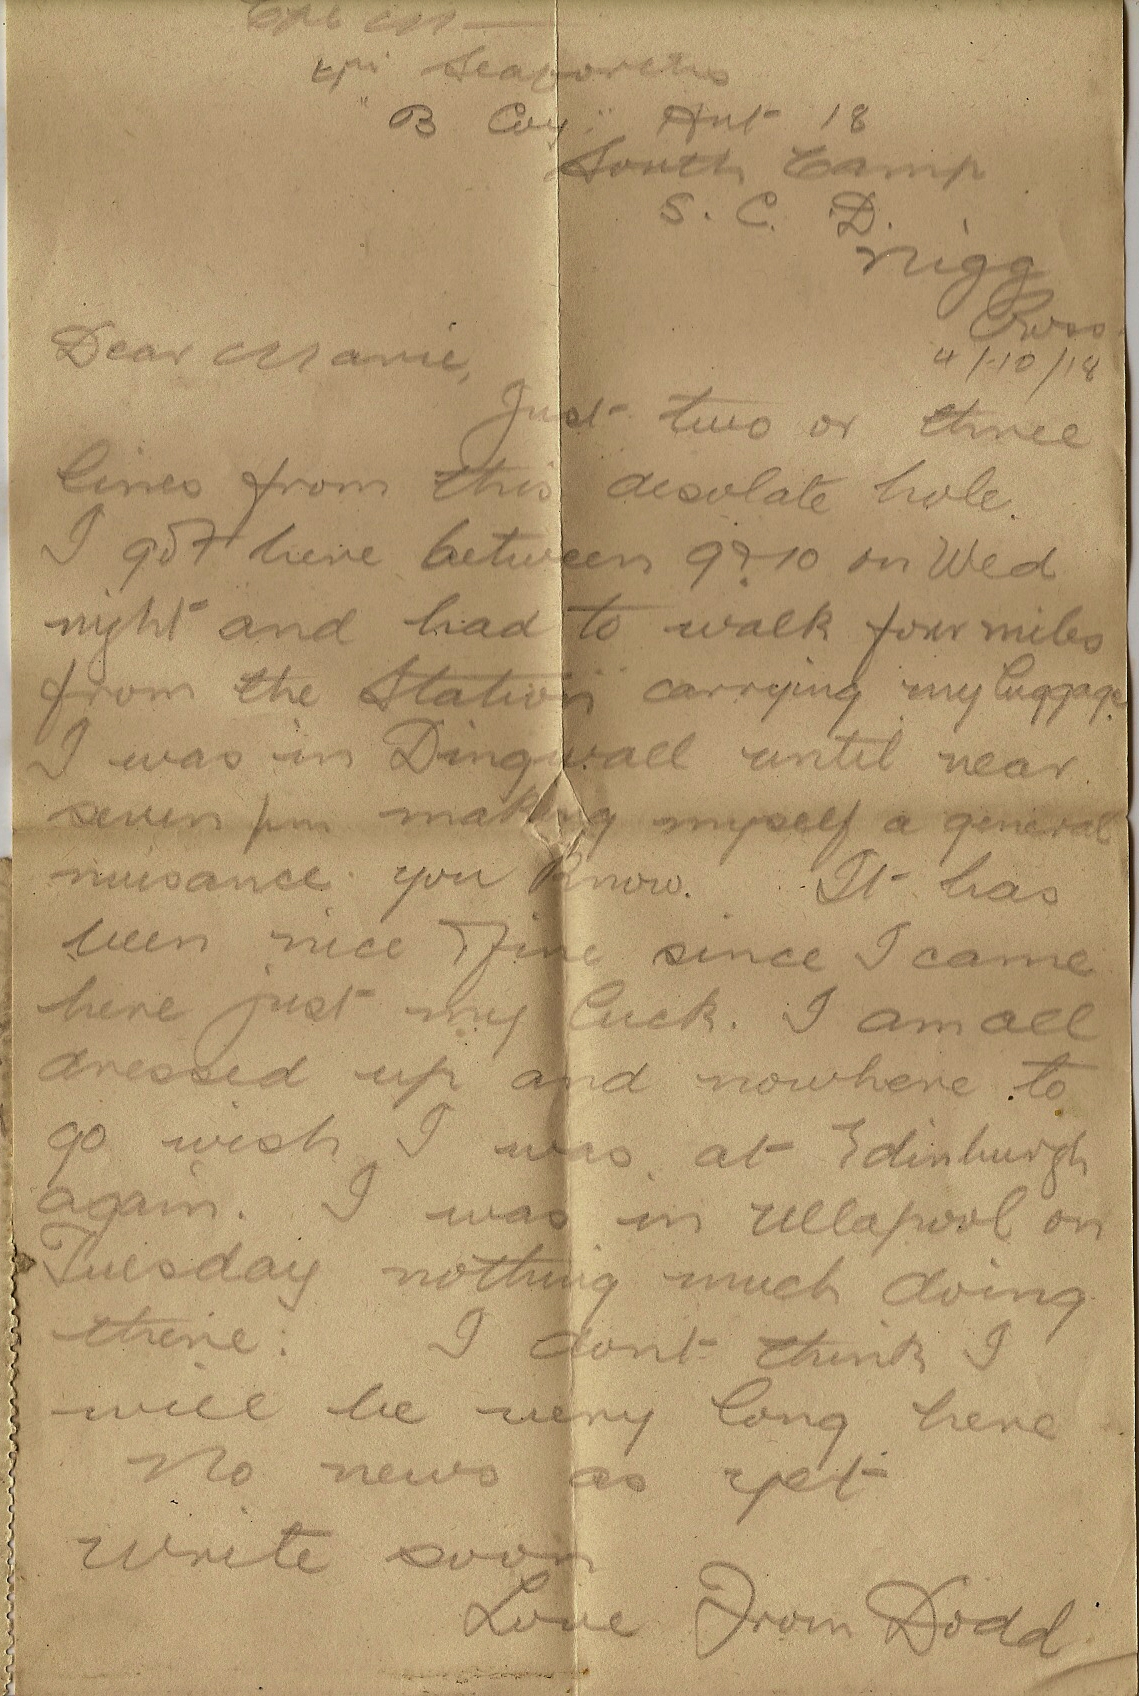 Seaforths
"B Coy" Hut 18
South Camp
S. C. D.
Nigg
Ross
4/10/18
Dear Marie,
Just two or three
lines from this desolate hole.
I got here between 9 & 10 on Wed
night and had to walk four miles
from the Station carrying my luggage
I was in Dingwall until near
seven pm making myself a general
nuisance you know. It has
been nice & fine since I came
here just my luck. I am all
dressed up and nowhere to
go wish I was at Edinburgh
again. I was in Ullapool on
Tuesday nothing much doing
there. I dont think I
will be very long here
No news as yet
write soon
Love From Dodd